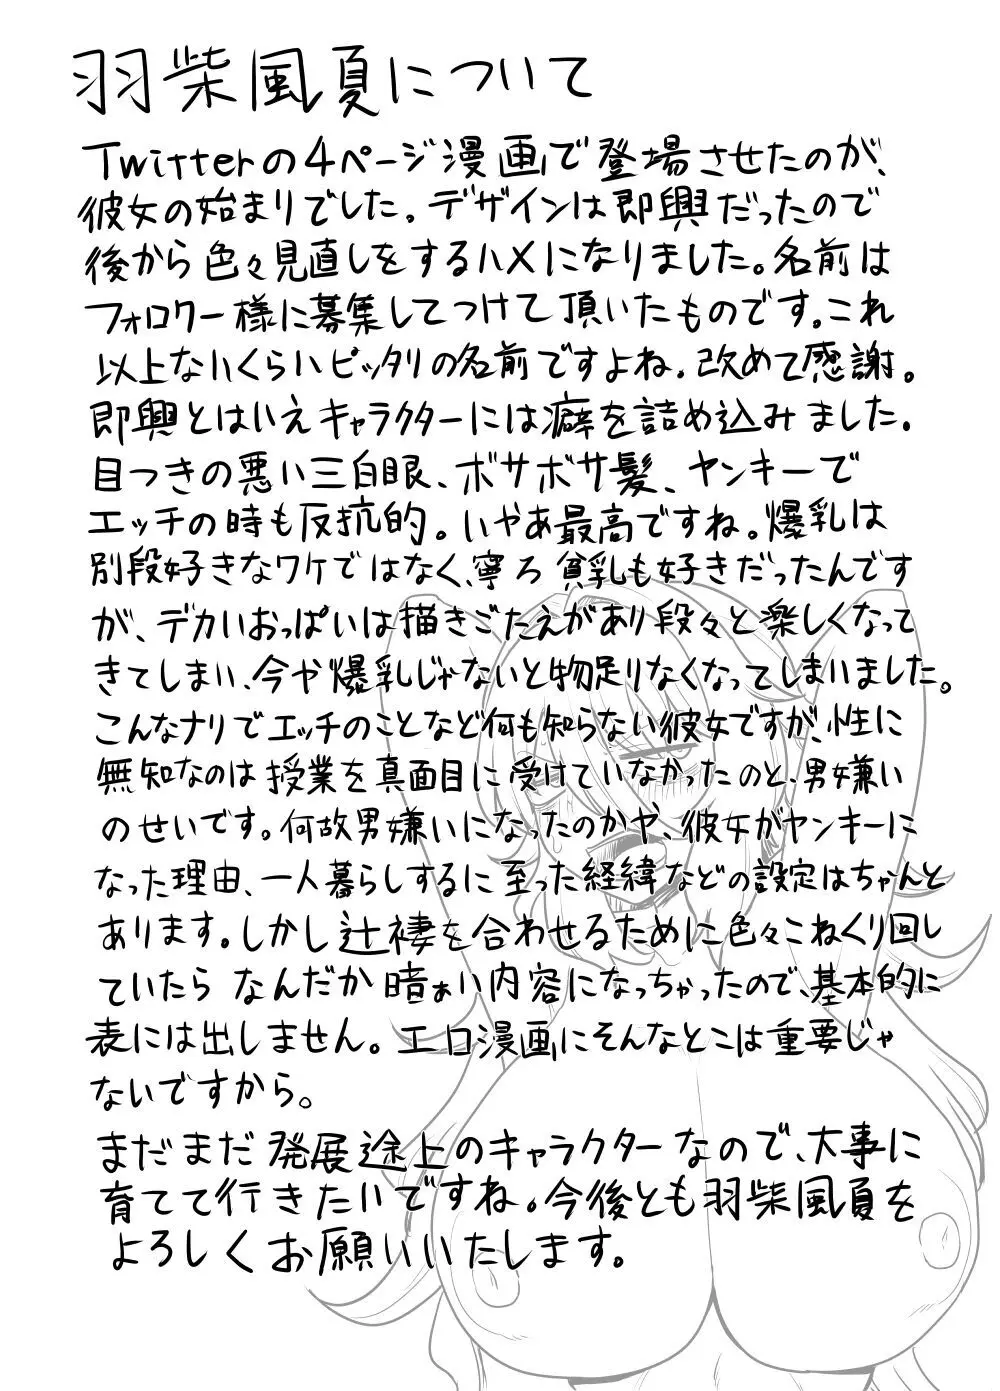 羽柴風夏について
Twitterの4ページ漫画で登場させたのが、
彼女の始まりでした。デザインは即興だったので
後から色々見直しをするハメになりました。名前は
フォロワー様に募集してつけて頂いたものです。これ
以上ないくらいピッタリの名前ですよね。改めて感謝。
即興とはいえキャラクターには癖を詰め込みました。
目つきの悪い三白眼、ボサボサ髪、ヤンキーで
エッチの時も反抗的。いやあ最高ですね。爆乳は
別段好きなワケではなく、寧ろ貧乳も好きだったんです
が、デカいおっぱいは描きごたえがあり段々と楽しくなって
きてしまい、今や爆乳じゃないと物足りなくなってしまいました。
こんなナリでエッチのことなど何も知らない彼女ですが、性に
無知なのは授業を真面目に受けていなかったのと、男嫌い
のせいです。何故男嫌いになったのかや、彼女がヤンキーに
なった理由、一人暮らしするに至った経緯などの設定はちゃんと
あります。しかし辻褄を合わせるために色々こねくり回し
ていたら なんだか暗ぁい内容になっちゃったので、基本的に
表には出しません。エロ漫画にそんなとこは重要じゃ
ないですから。
まだまだ発展途上のキャラクターなので、大事に
育てて行きたいですね。今後とも羽柴風夏を
よろしくお願いいたします。